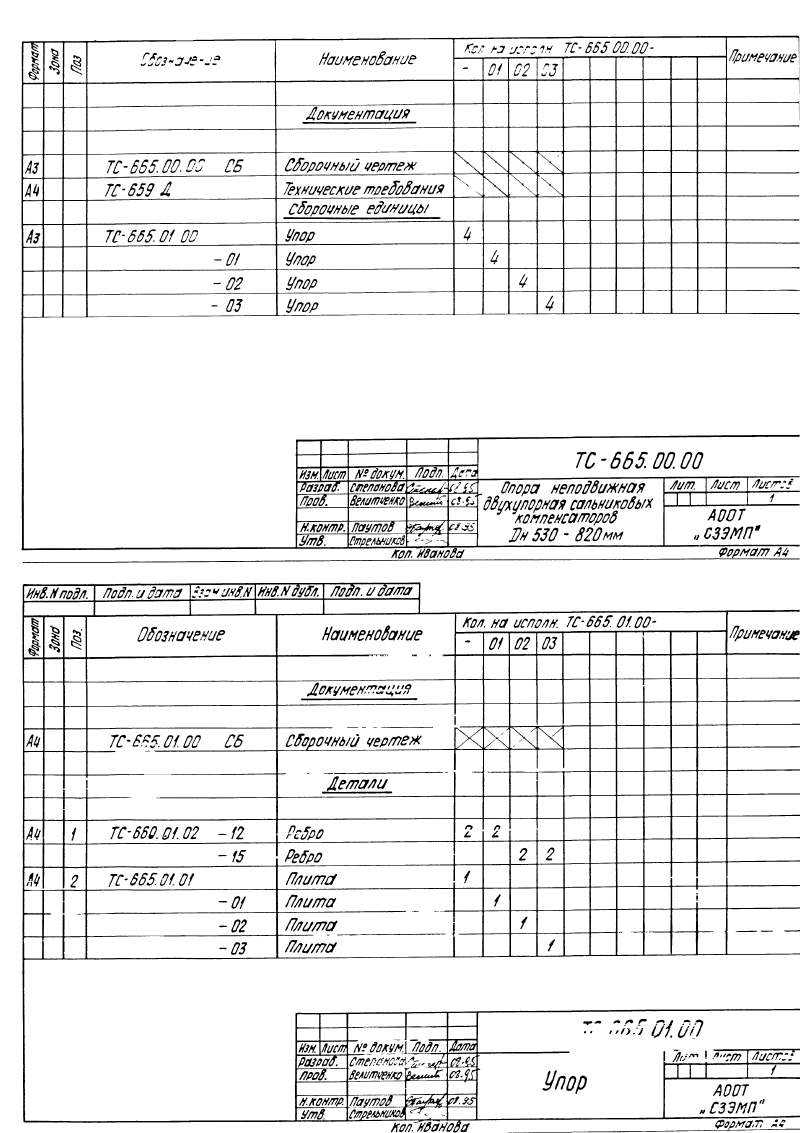 Формат Зона Поз Обозначение Наименование Кол. на исполн. ТС-665.00.00- Примечание
- 01 02 03
Документация
А3 ТС-665.00.00 СБ Сборочный чертеж
А4 ТС-659 Д Технические требования
Сборочные единицы
А3 ТС-665.01.00 Упор 4
-01 Упор 4
-02 Упор 4
-03 Упор 4
ТС-665.00.00
Изм. Лист № докум. Подп. Дата
Разраб. Степанова
Пров. Велитченко 08.95
Н.контр. Паутов 08.95
Утв. Стрельников
Опора неподвижная
двухупорная сальниковых
компенсаторов
Dн 530 - 820 мм
Лит. Лист Листов
1
АООТ
„СЗЭМП"
Кол. Иванова Формат А4
Инв.N подл. Подп. и дата Взам инв.N Инв.N дубл. Подп. и дата
Формат Зона Поз. Обозначение Наименование Кол. на исполн. ТС-665.01.00- Примечание
- 01 02 03
Документация
А4 ТС-665.01.00 СБ Сборочный чертеж
Детали
А4 1 ТС-660.01.02 -12 Ребро 2 2
-15 Ребро 2 2
А4 2 ТС-665.01.01 Плита 1
-01 Плита 1
-02 Плита 1
-03 Плита 1
ТС-665.01.00
Изм. Лист № докум. Подп. Дата
Разраб. Степанова 08.95
Пров. Велитченко 08.95
Н.контр. Паутов 08.95
Утв. Стрельников
Упор
Лит Лист Листов
1
АООТ
„СЗЭМП"
Кол. Иванова Формат А4